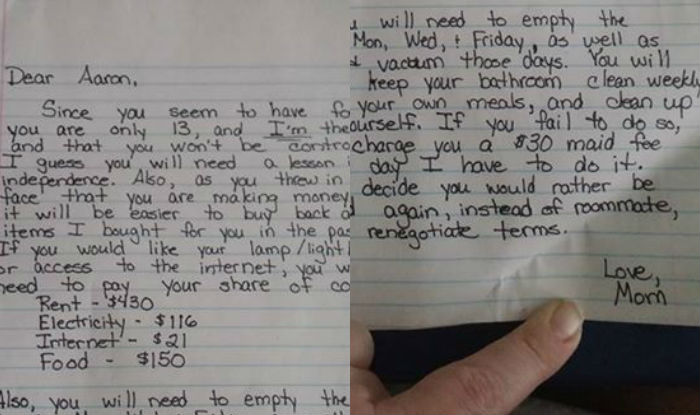 Dear Aaron,
Since you seem to have fo
you are only 13, and I'm the
and that you won't be contro
I guess you will need a lesson i
independence. Also, as you threw in
face that you are making money
it will be easier to buy back a
items I bought for you in the pas
If you would like your lamp/light
or access to the internet, you w
need to pay your share of co
Rent - $430
Electricity - $116
Internet - $21
Food - $150
Also, you will need to empty the
will need to empty the
Mon, Wed, + Friday, as well as
vacuum those days. You will
keep your bathroom clean weekly
your own meals, and clean up
ourself. If you fail to do so,
charge you a $30 maid fee
day I have to do it.
decide you would rather be
again, instead of roommate,
renegotiate terms.
Love,
Mom